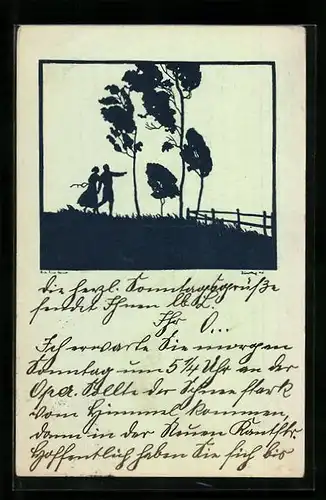 Die herzl. Sonntagsgrüße
sendet Ihnen lbd.
Ihr O...
Ich erwarte Sie morgen
Sonntag um 5¼ Uhr an der
Oper. Sollte der Schnee stark
vom Himmel kommen,
dann in der Neuen
Hoffentlich haben Sie sich bis